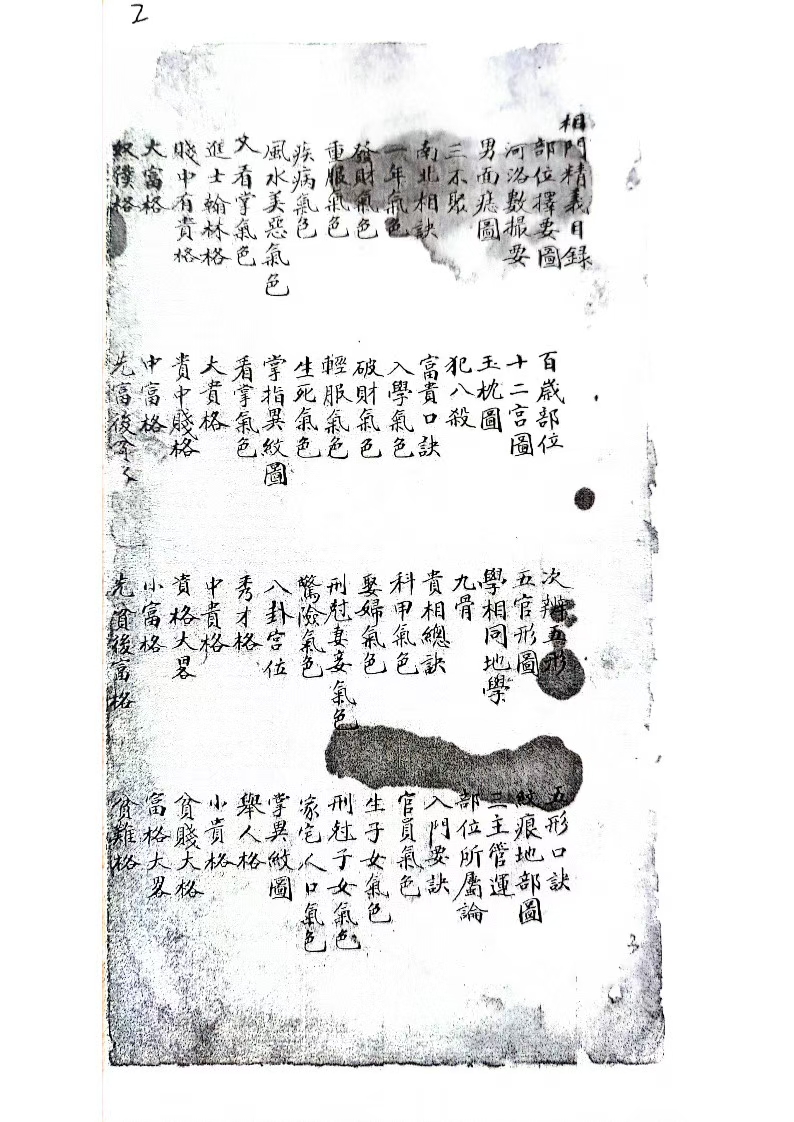 2
相門精義目錄
部位擇要圖 百歲部位 次辨五形 五形口訣
河洛數撮要 十二宮圖 五官形圖 紋痕地部圖
男面痣圖 玉枕圖 學相同地學 三主管運
三不 犯八殺 九骨 部位所屬論
南北相訣 富貴口訣 貴相總訣 入門要訣
一年氣色 入學氣色 科甲氣色 官員氣色
發財氣色 破財氣色 娶婦氣色 生子女氣色
重服氣色 輕服氣色 刑尅妻妾氣色 刑尅子女氣色
疾病氣色 生死氣色 驚險氣色 家宅人口氣色
風水美惡氣色 掌指異紋圖 八卦宮位 掌異紋圖
又看掌氣色 看掌氣色 秀才格 舉人格
進士翰林格 大貴格 中貴格 小貴格
賤中有貴格 貴中賤格 貴格大畧 貧賤大格
大富格 中富格 小富格 富格大畧
奴僕格 先富後 先貧後富格 貧難格
3